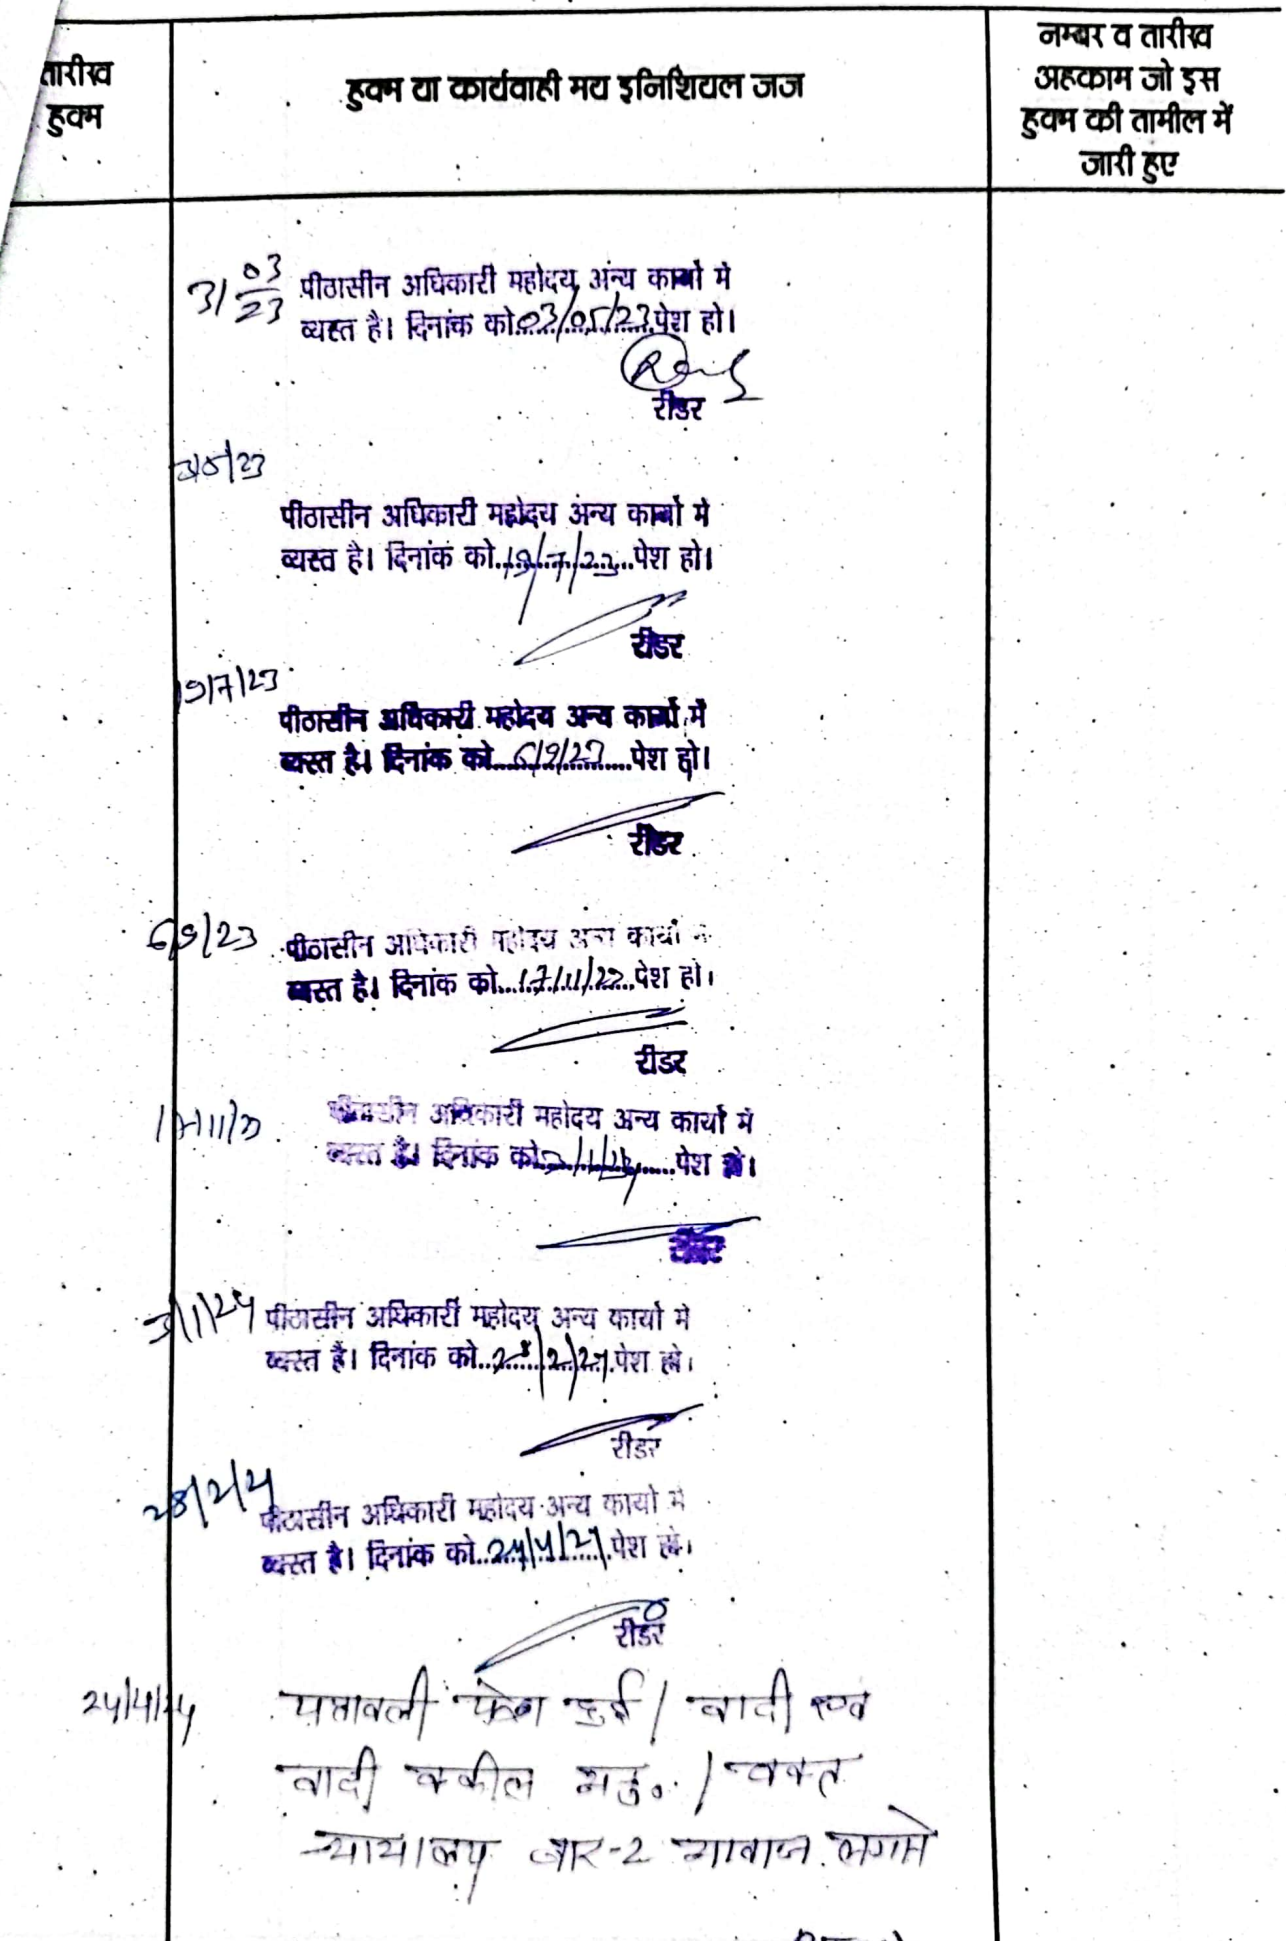 तारीख
हुक्म
हुक्म या कार्यवाही मय इनिशियल जज
नम्बर व तारीख
अहकाम जो इस
हुक्म की तामील में
जारी हुए
31/03/23 पीठासीन अधिकारी महोदय अन्य कार्यो मे
व्यस्त है। दिनांक को 03/05/23 पेश हो।
रीडर
3/5/23
पीठासीन अधिकारी महोदय अन्य कार्यो मे
व्यस्त है। दिनांक को 19/7/23 पेश हो।
रीडर
19/7/23
पीठासीन अधिकारी महोदय अन्य कार्यो में
व्यस्त है। दिनांक को 6/9/23 पेश हो।
रीडर
6/9/23 पीठासीन अधिकारी महोदय अन्य कार्यो मे
व्यस्त है। दिनांक को 17/11/23 पेश हो।
रीडर
17/11/23 पीठासीन अधिकारी महोदय अन्य कार्यो मे
व्यस्त है। दिनांक को 3/1/24 पेश हो।
रीडर
3/1/24 पीठासीन अधिकारी महोदय अन्य कार्यो मे
व्यस्त है। दिनांक को 28/2/24 पेश हो।
रीडर
28/2/24 पीठासीन अधिकारी महोदय अन्य कार्यो मे
व्यस्त है। दिनांक को 24/4/24 पेश हो।
रीडर
24/4/24 पत्रावली पेश हुई। वादी एवं
वादी वकील अनु०। वक्त
न्यायालय बार-2 आवाज लगाने